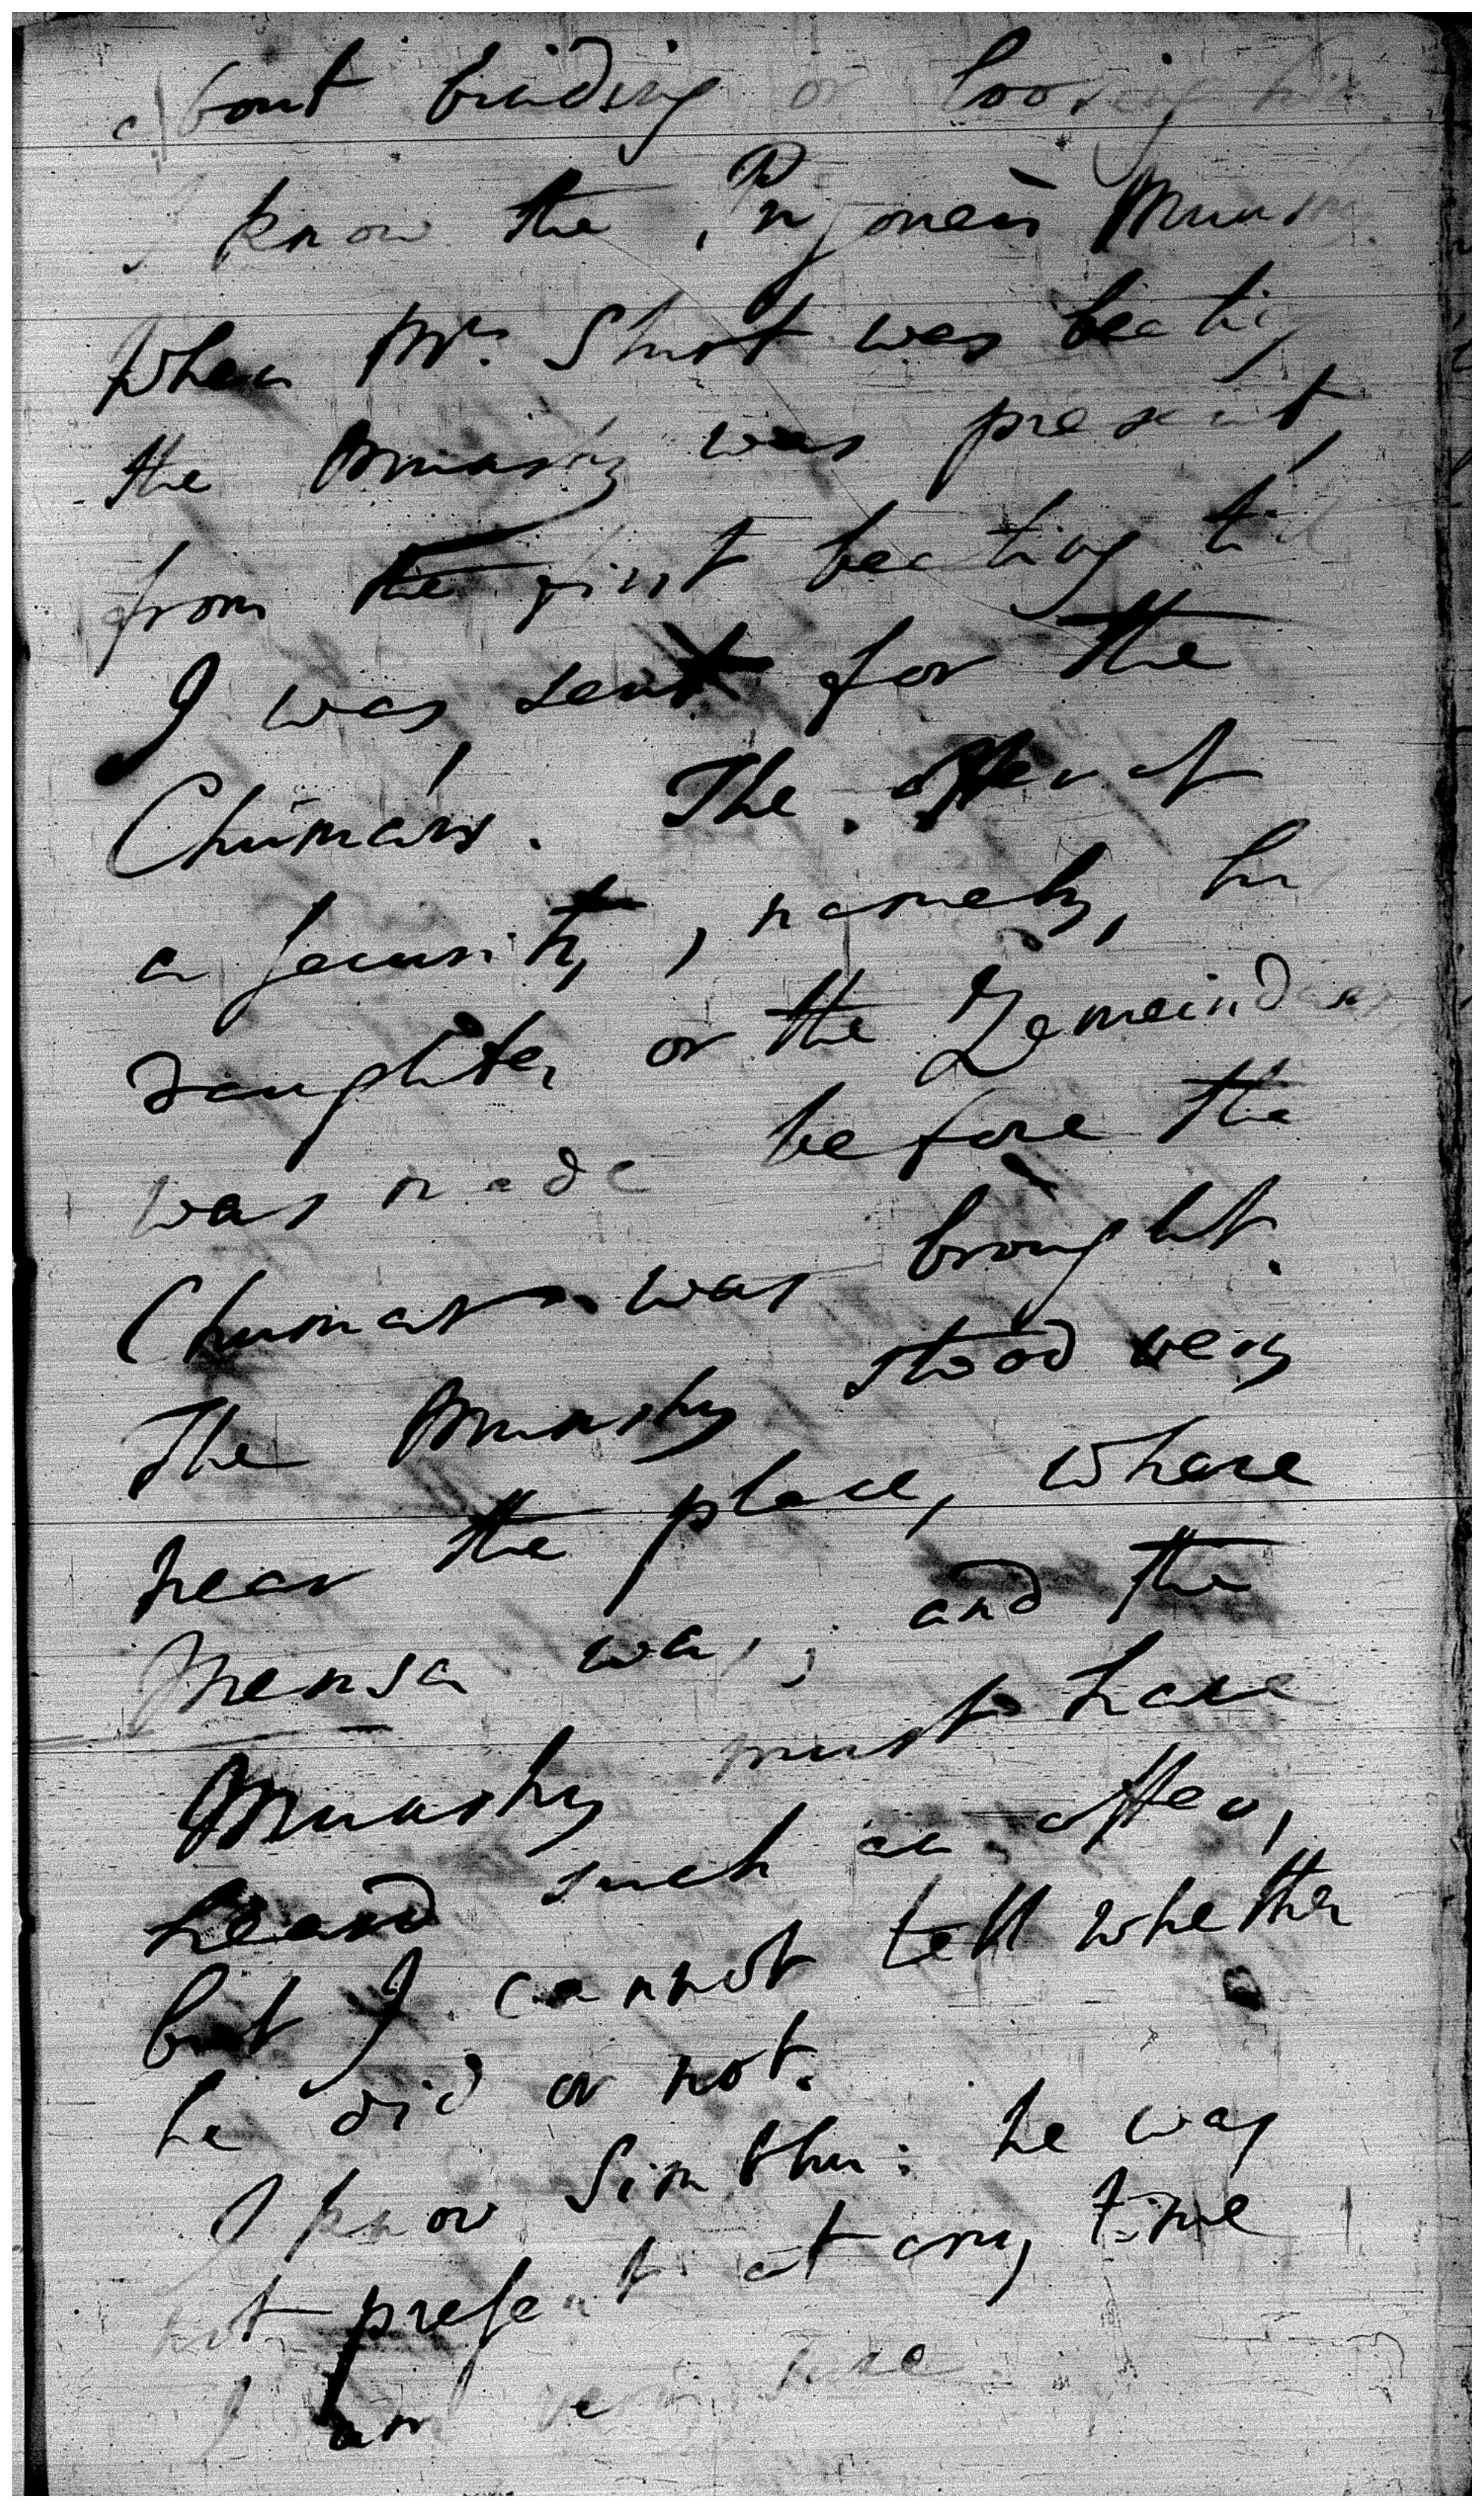 about binding or loosing him
I know the Prisoner's Munshy
When Mr. Short was beating
the Munshy was present,
from the first beating till
I was sent for the
Chumár. The offer of
a security, namely, his
daughter or the Zemeindar
was made before the
Chumar was brought.
The Munshy stood very
near the place, where
Mensa was, and the
Munshy must have
heard such an offer,
but I cannot tell whether
he did or not.
I know Simbhu: he was
not present at any time
I am very sure